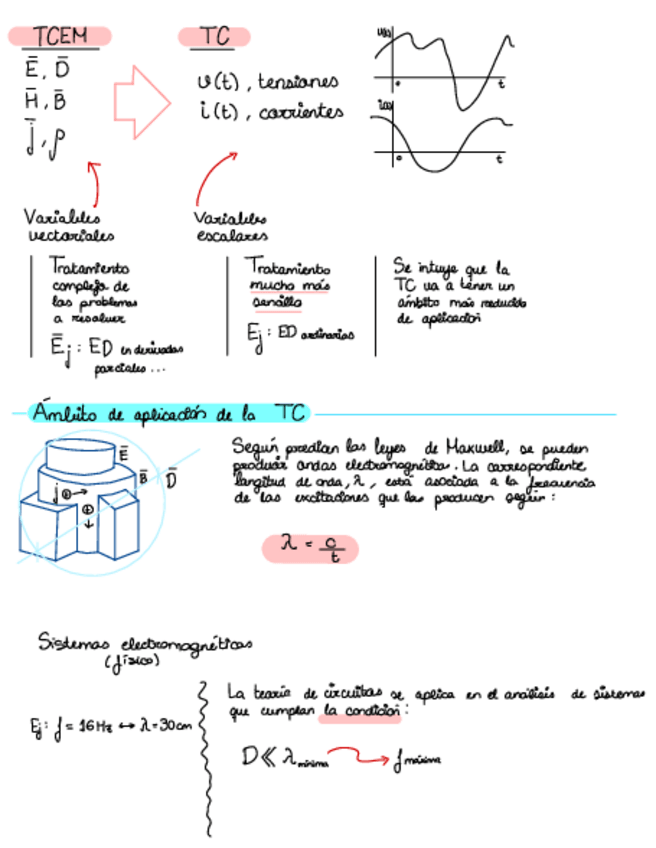 TCEM
TC
Ē, D̄
H̄, B̄
j̄, ρ
u(t), tensiones
i(t), corrientes
u(t)
o
t
i(t)
o
t
Variables
vectoriales
Variables
escalares
Tratamiento
complejo de
los problemas
a resolver
Ēj: ED en derivadas
parciales ...
Tratamiento
mucho más
sencillo
Ej: ED ordinarias
Se intuye que la
TC va a tener un
ámbito más reducido
de aplicación
Ámbito de aplicación de la TC
Ē
B̄
D̄
j
+
+
Según predicen las leyes de Maxwell, se pueden
producir ondas electromagnéticas. La correspondiente
longitud de onda, λ, está asociada a la frecuencia
de las excitaciones que las producen según:
λ = c/t
Sistemas electromagnéticos
(físico)
Ej: f = 16Hz ↔ λ=30cm
La teoría de circuitos se aplica en el análisis de sistemas
que cumplan la condición:
D ≪ λ mínima → f máxima